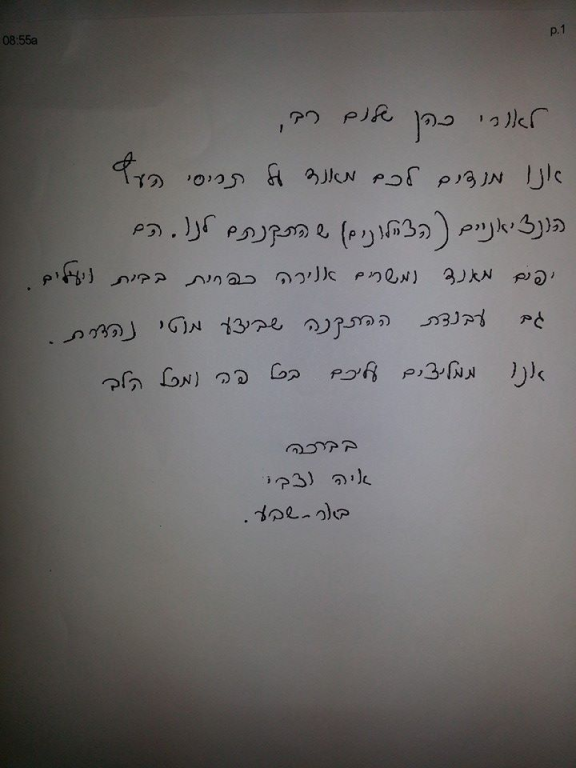 08:55a
p.1
לאורי כהן שלום רב,
אנו מודים לכם מאוד על תריסי העץ
הונציאניים (הצילונים) שהתקנתם לנו. הם
יפים מאוד ומשרים אוירה כפרית בבית ויעילים.
גם עבודת ההתקנה שביצע מוטי נהדרת.
אנו ממליצים עליכם בכל פה ומכל הלב
בברכה
איה וצבי
באר-שבע.